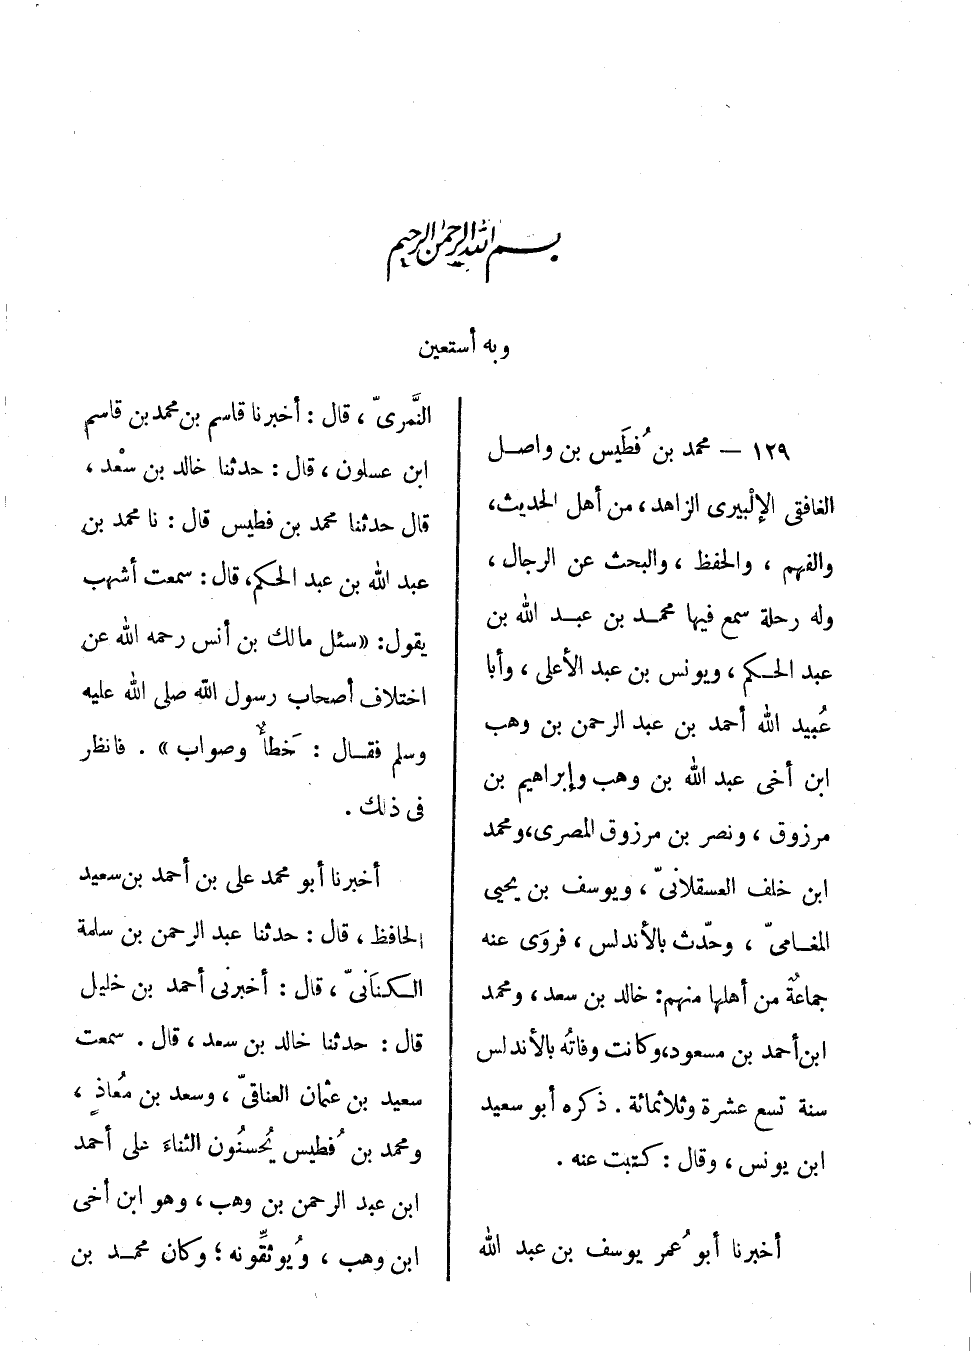 بسم الله الرحمن الرحيم
وبه أستعين
١٢٩ — محمد بن فُطَيس بن واصل
الغافقى الإلْبيرى الزاهد، من أهل الحديث،
والفهم ، والحفظ ، والبحث عن الرجال ،
وله رحلة سمع فيها محمد بن عبد الله بن
عبد الحكم ، ويونس بن عبد الأعلى ، وأبا
عُبيد الله أحمد بن عبد الرحمن بن وهب
ابن أخى عبد الله بن وهب وإبراهيم بن
مرزوق ، ونصر بن مرزوق المصرى، ومحمد
ابن خلف العسقلانىّ ، ويوسف بن يحيى
المغامىّ ، وحدّث بالأندلس ، فروَى عنه
جماعةٌ من أهلها منهم: خالد بن سعد ، ومحمد
ابن أحمد بن مسعود، وكانت وفاتُه بالأندلس
سنة تسع عشرة وثلاثمائة . ذكره أبو سعيد
ابن يونس ، وقال : كتبت عنه .
أخبرنا أبو عُمر يوسف بن عبد الله
النَّمرىّ ، قال : أخبرنا قاسم بن محمد بن قاسم
ابن عسلون ، قال : حدثنا خالد بن سعْد ،
قال حدثنا محمد بن فطيس قال : نا محمد بن
عبد الله بن عبد الحكم، قال : سمعت أشهب
يقول: «سئل مالك بن أنس رحمه الله عن
اختلاف أصحاب رسول الله صلى الله عليه
وسلم فقال : خَطأٌ وصواب» . فانظر
فى ذلك .
أخبرنا أبو محمد على بن أحمد بن سعيد
الحافظ ، قال : حدثنا عبد الرحمن بن سلمة
الكنَانىّ ، قال : أخبرنى أحمد بن خليل
قال : حدثنا خالد بن سعد ، قال . سمعت
سعيد بن عثمان العناقىّ ، وسعد بن مُعاذٍ ،
ومحمد بن فُطيس يُحسنُون الثناء على أحمد
ابن عبد الرحمن بن وهب ، وهو ابن أخى
ابن وهب ، ويُوثقِّونه ؛ وكان محمد بن